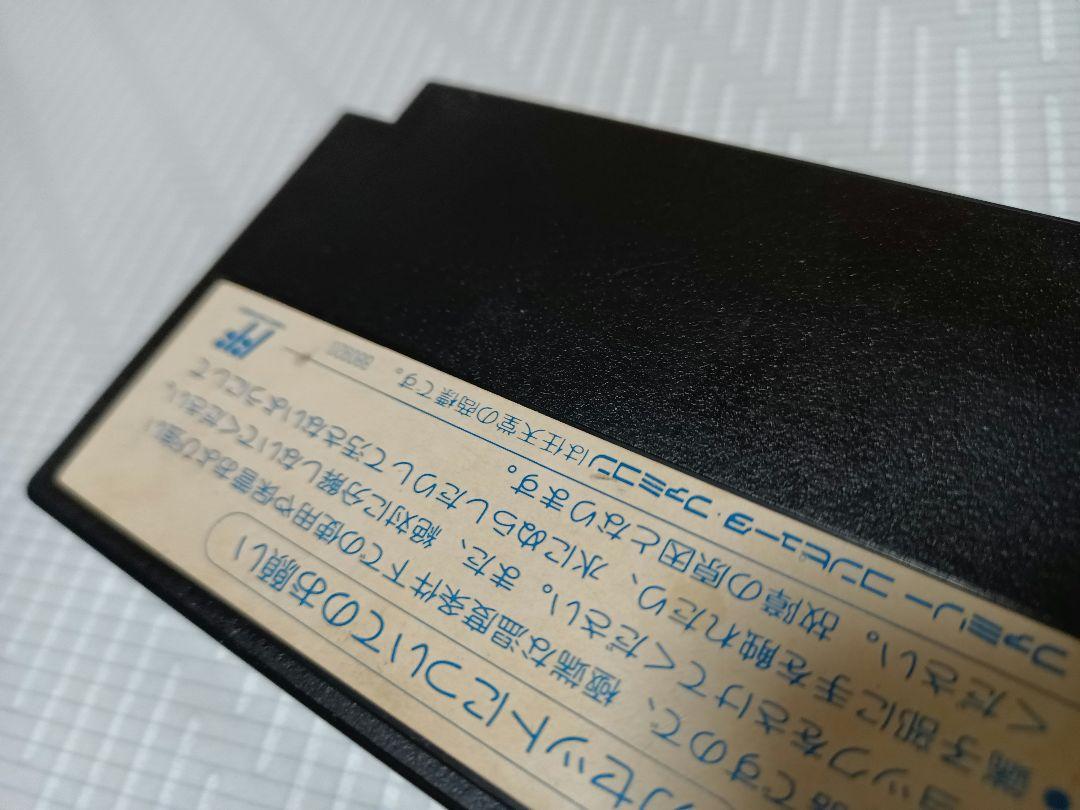 カセットについてのお願い
極端な温度条件下での使用や保管および強い
ョックをさけてください。また、絶対に分解しないでください。
端子部に手を触れたり、水にぬらしたりして汚さないようにして
ください。故障の原因となります。
ファミリーコンピュータ・ファミコンは任天堂の商標です。
FF